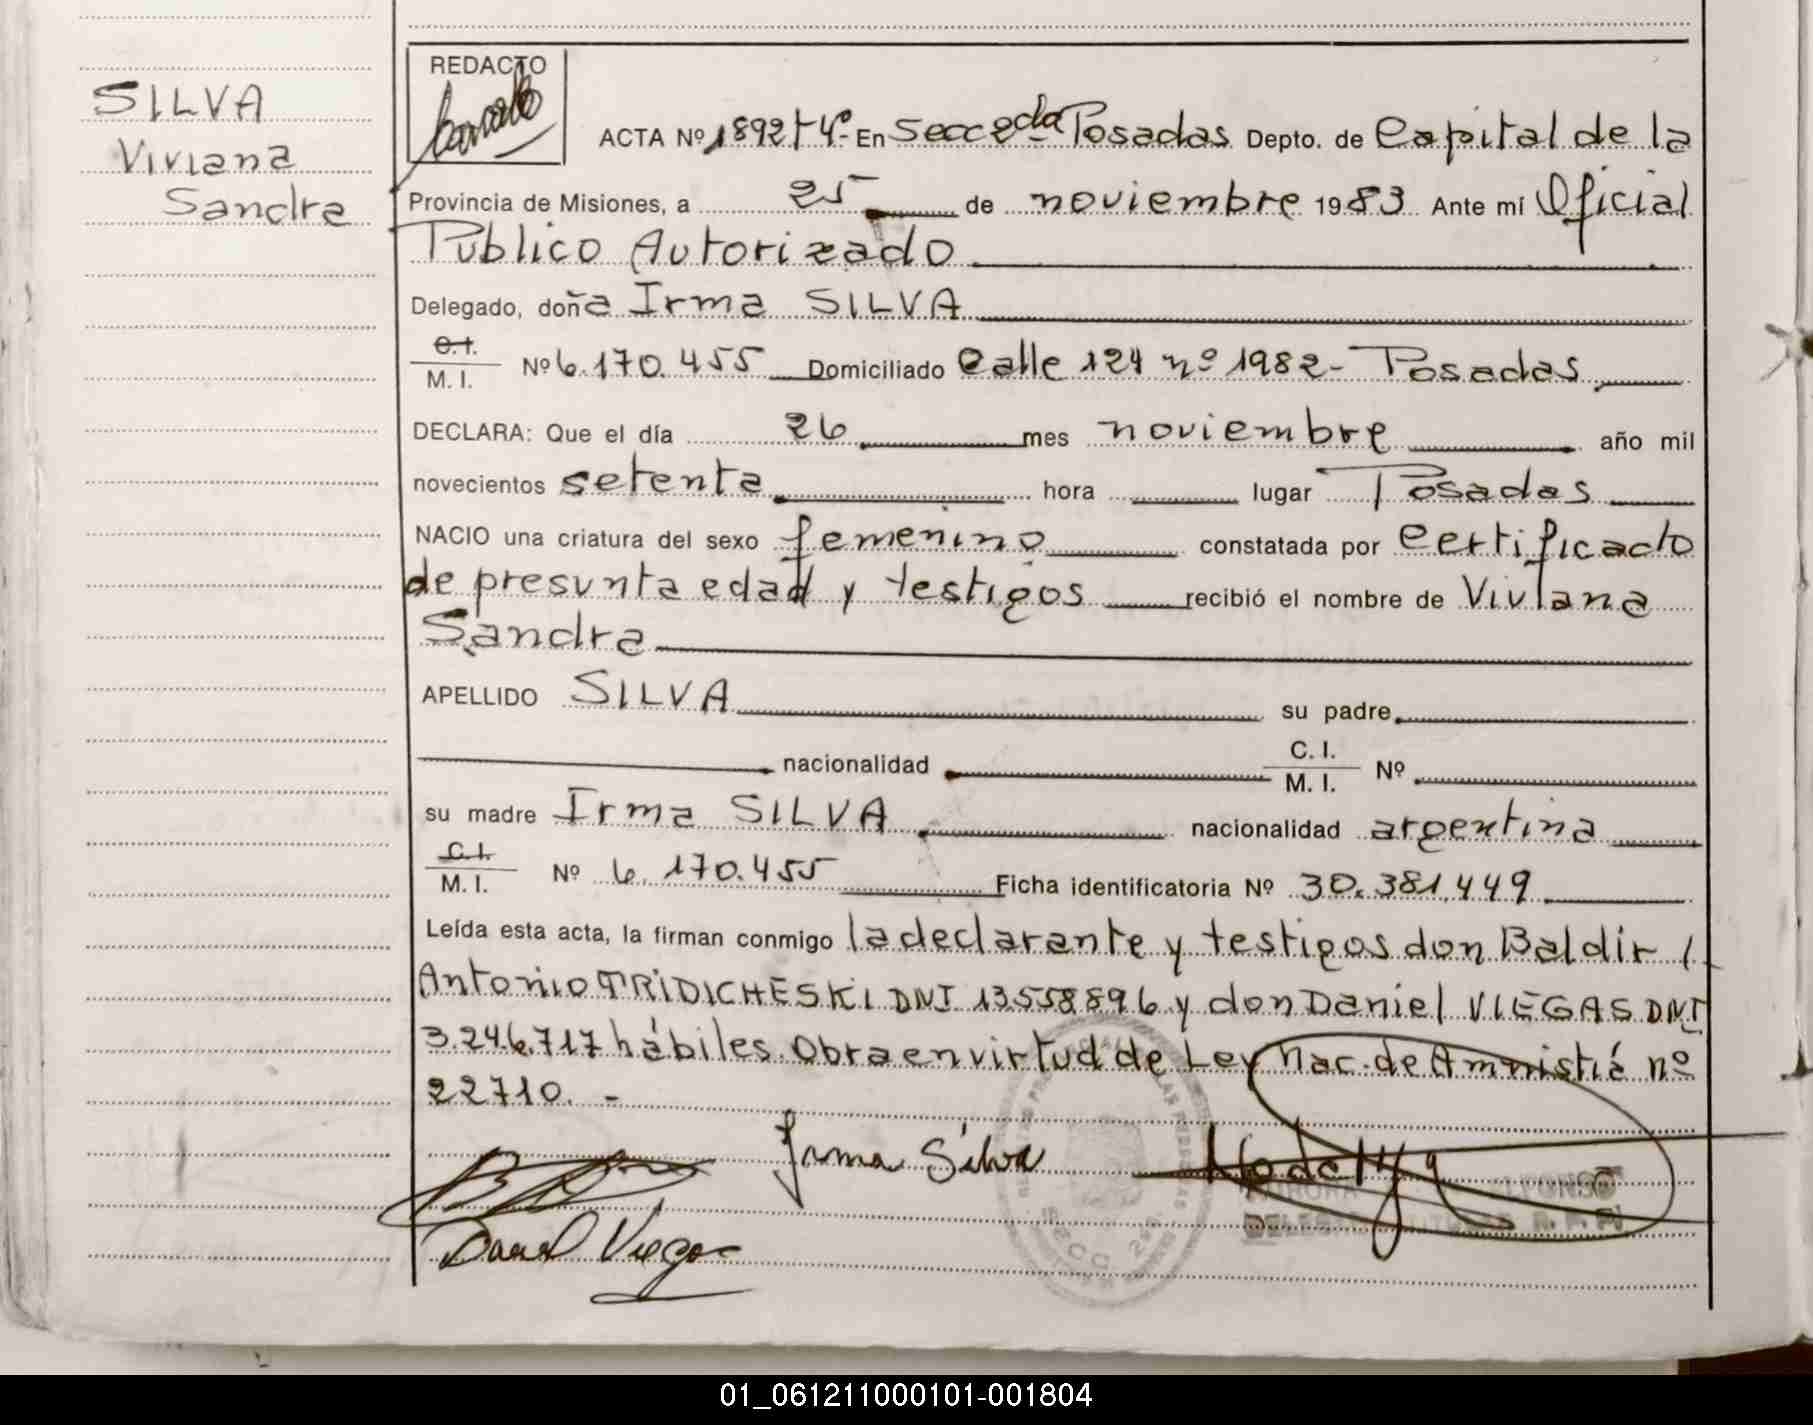 SILVA
Viviana
Sandra
REDACTO
ACTA Nº 1892 t 4º- En Secc 2da Posadas Depto. de Capital de la
Provincia de Misiones, a 25 de noviembre 1983 Ante mí Oficial
Público Autorizado
Delegado, doña Irma SILVA
C.I. M.I. Nº 6.170.455 Domiciliado Calle 124 nº 1982- Posadas
DECLARA: Que el día 26 mes noviembre año mil
novecientos setenta hora lugar Posadas
NACIO una criatura del sexo femenino constatada por certificado
de presunta edad y testigos recibió el nombre de Viviana
Sandra
APELLIDO SILVA su padre
nacionalidad C.I. M.I. Nº
su madre Irma SILVA nacionalidad argentina
C.I. M.I. Nº 6.170.455 Ficha identificatoria Nº 30.381.449
Leída esta acta, la firman conmigo la declarante y testigos don Baldir /
Antonio TRIDICHESKI DNI 13558896 y don Daniel VIEGAS DNI
3.246.717 hábiles. Obra en virtud de Ley Nac. de Amnistía nº
22710. -
Irma Silva
Daniel Viegas
01_061211000101-001804